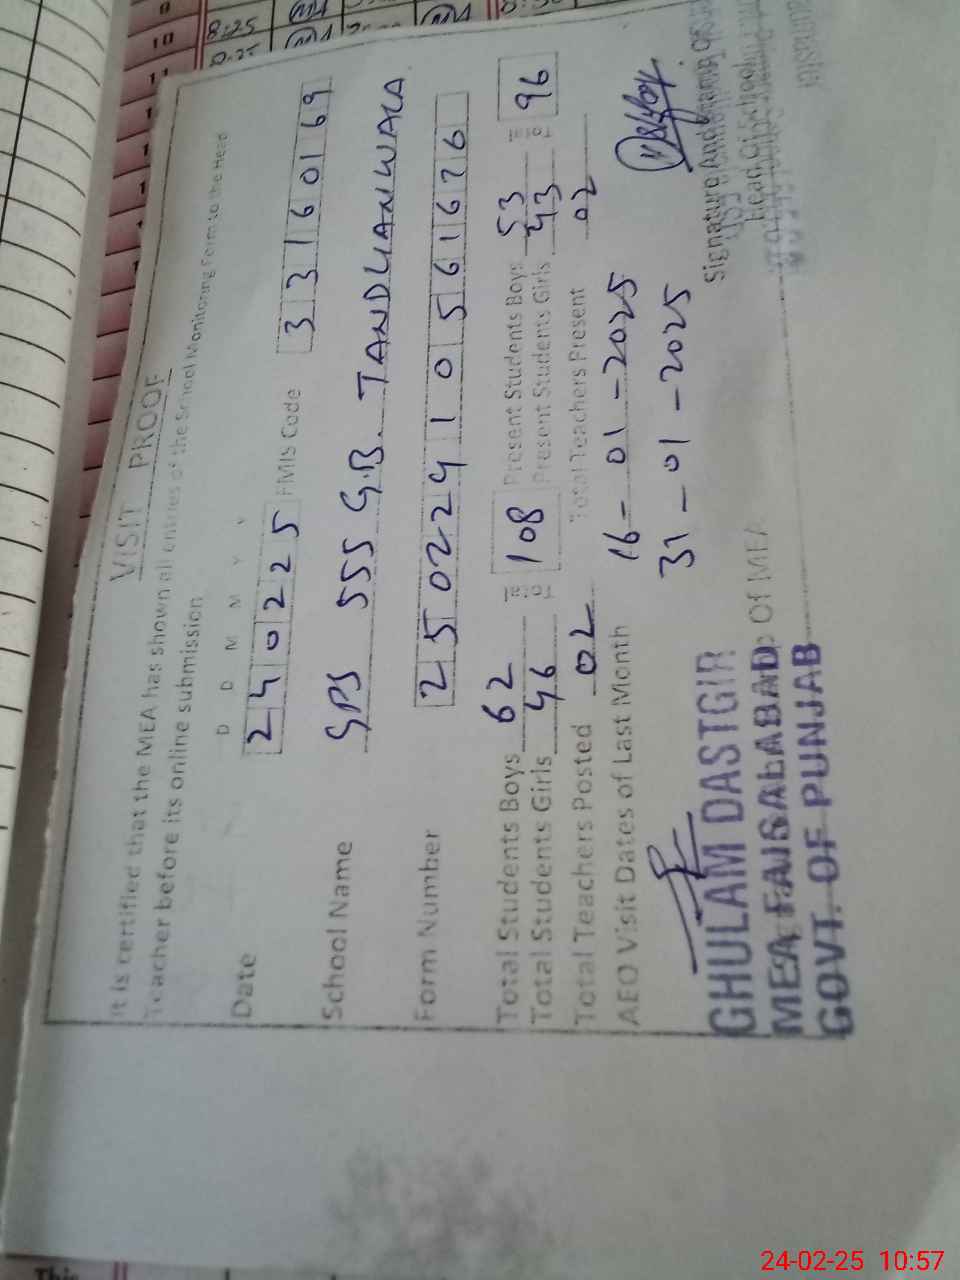 VISIT PROOF
It is certified that the MEA has shown all entries of the School Monitoring Form to the Head
Teacher before its online submission
D D M M Y Y
Date 240225 EMIS Code 33160169
School Name GPS 555 G.B. TANDLIANWALA
Form Number 25022410561676
Total Students Boys 62 108 Present Students Boys 53 96
Total Students Girls 46 Present Students Girls 43
Total Teachers Posted 02 Total Teachers Present 02
AEO Visit Dates of Last Month 16-01-2025
31-01-2025
GHULAM DASTGIR
MEA FAISALABAD Of MEA
GOVT. OF PUNJAB
Signature And Stamp Of
Head Of School
8:25
This
24-02-25 10:57